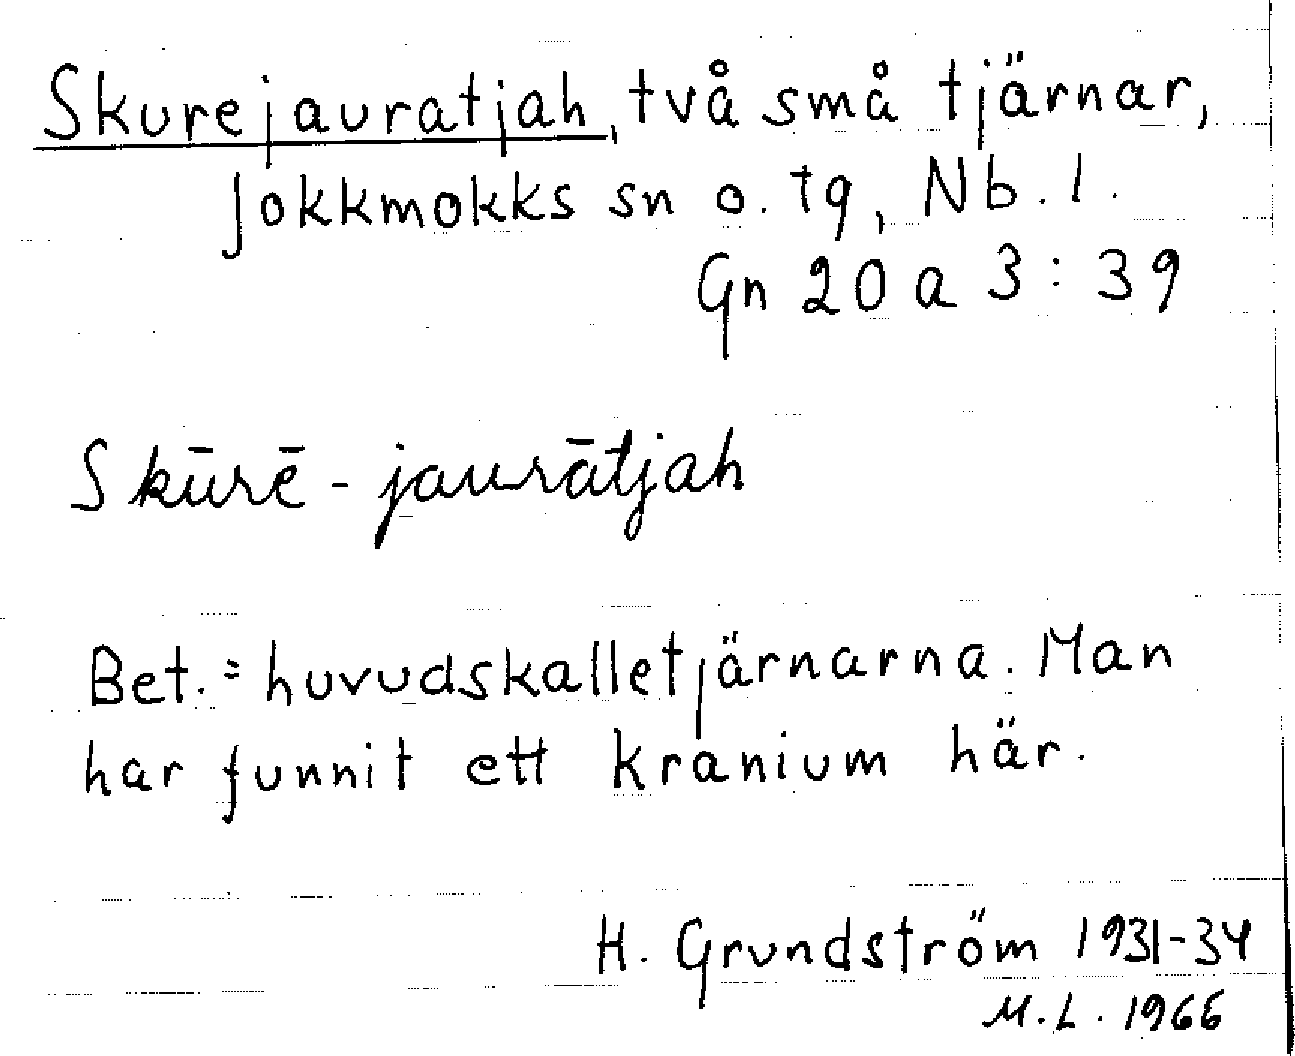 Skurejauratjah, två små tjärnar,
Jokkmokks sn o. tg, Nb. l.
Gn 20 a 3 : 39
Skūrē - jaurātjah
Bet. = huvudskalletjärnarna. Man
har funnit ett kranium här.
H. Grundström 1931-34
M.L. 1966